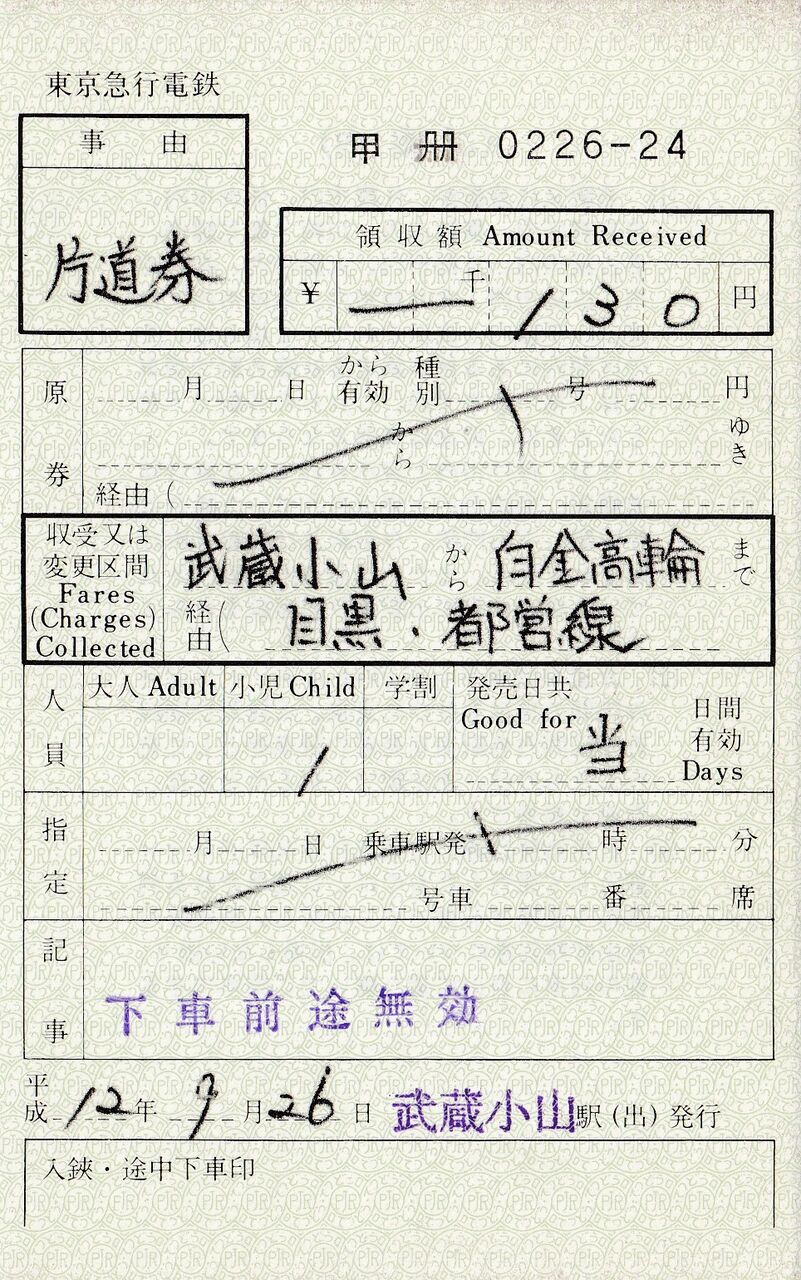 東京急行電鉄
事由
甲 冊 0226-24
片道券
領収額 Amount Received
¥ ― 千 130 円
原券
月 日 から有効 種別 号 円
から ゆき
経由(
収受又は変更区間
Fares
(Charges)
Collected
武蔵小山 から 白金高輪 まで
経由( 目黒・都営線
人員
大人 Adult 小児 Child 学割
1
発売日共 日間
Good for 当 有効
Days
指定
月 日 乗車駅発 時 分
号車 番 席
記事
下車前途無効
平成 12年 9月 26日 武蔵小山駅(出)発行
入鋏・途中下車印